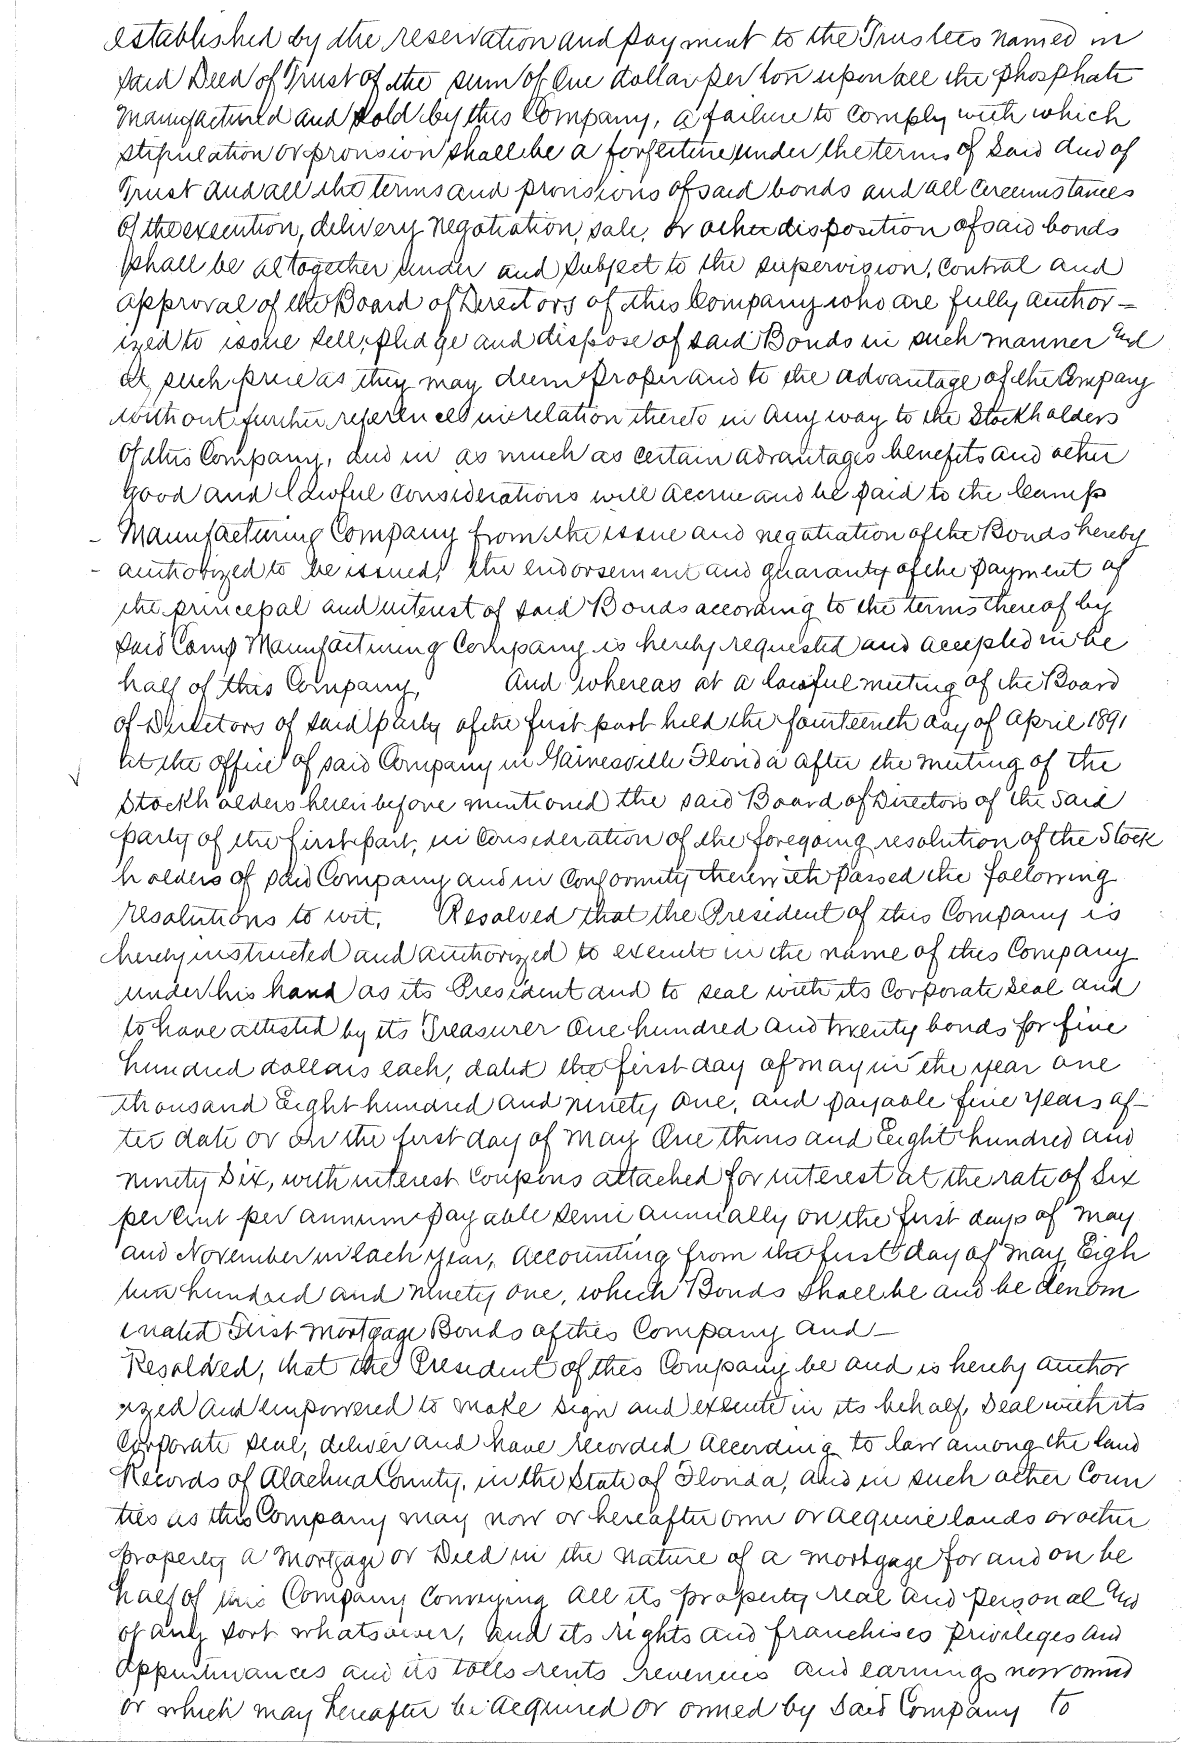 established by the reservation and payment to the Trustees named in
said Deed of Trust of the sum of One dollar per ton upon all the phosphate
manufactured and sold by this Company, a failure to comply with which
stipulation or provision shall be a forfeiture under the terms of said deed of
Trust and all the terms and provisions of said bonds and all circumstances
of the execution, delivery negotiation, sale, or other disposition of said bonds
shall be altogether under and subject to the supervision, control and
approval of the Board of Directors of this Company who are fully author-
ized to issue sell, pledge and dispose of said Bonds in such manner and
at such price as they may deem proper and to the advantage of the Company
without further reference in relation thereto in any way to the Stockholders
of this Company, and in as much as certain advantages benefits and other
good and lawful considerations will accrue and be paid to the Camp
- Manufacturing Company from the issue and negotiation of the Bonds hereby
- authorized to be issued, the endorsement and guaranty of the payment of
the principal and interest of said Bonds according to the terms thereof by
said Camp Manufacturing Company is hereby requested and accepted in be
half of this Company, And whereas at a lawful meeting of the Board
of Directors of said party of the first part held the fourteenth day of April 1891
at the office of said Company in Gainesville Florida after the meeting of the
Stockholders herein before mentioned the said Board of Directors of the said
party of the first part, in consideration of the foregoing resolution of the Stock
holders of said Company and in conformity therewith passed the following
resolutions to wit, Resolved that the President of this Company is
hereby instructed and authorized to execute in the name of this Company
under his hand as its President and to seal with its Corporate seal and
to have attested by its Treasurer One hundred and twenty bonds for five
hundred dollars each, dated the first day of May in the year one
thousand Eight hundred and ninety one, and payable five years af-
ter date or on the first day of May One thousand Eight hundred and
ninety Six, with interest Coupons attached for interest at the rate of Six
per cent per annum payable semi annually on the first days of May
and November in each year, accounting from the first day of May Eigh
teen hundred and ninety one, which Bonds shall be and be denom
inated First Mortgage Bonds of this Company and-
Resolved, that the President of this Company be and is hereby author
ized and empowered to make sign and execute in its behalf, Seal with its
Corporate seal, deliver and have recorded according to law among the land
Records of Alachua County, in the State of Florida, and in such other Coun
ties as this Company may now or hereafter own or acquire lands or other
property a Mortgage or Deed in the nature of a mortgage for and on be
half of this Company Conveying all its property real and personal and
of any sort whatsoever, and its rights and franchises privileges and
appurtenances and its tolls rents revenues and earnings now owned
or which may hereafter be acquired or owned by said Company to